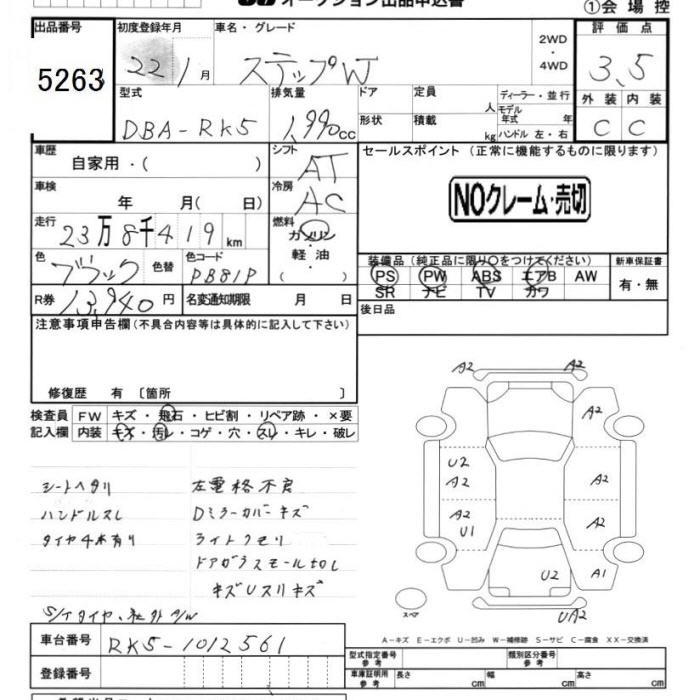 オークション出品申込書
①会場控
出品番号 初度登録年月 車名・グレード 評価点
5263 22/1月 ステップW 2WD・4WD 3.5
型式 排気量 ドア 定員 人 ディーラー・並行 外装 内装
DBA-RK5 1,990cc 形状 積載 kg モデル年式 年 ハンドル 左・右 C C
車歴 シフト セールスポイント (正常に機能するものに限ります)
自家用・( ) AT
車検 冷房 NOクレーム・売切
年 月( 日) AC
走行 燃料
23万8千419km ガソリン
装備品 (純正品に限り○をつけてください) 新車保証書
色 色替 色コード 軽油
ブラック PB81P ・( )
PS PW ABS エアB AW 有・無
SR ナビ TV カワ
R券 13,940円 名変通知期限 月 日
後日品
注意事項申告欄(不具合内容等は具体的に記入して下さい)
修復歴 有〔箇所 〕
検査員 FW キズ・飛石・ヒビ割・リペア跡・×要
記入欄 内装 キズ・汚レ・コゲ・穴・スレ・キレ・破レ
シートヘタリ 左電格不良
ハンドルスレ Dミラーカバーキズ
タイヤ4本有り ライトクモリ
キズUスリキズ
S/Iタイヤ、社外A/W
A2 A2
A2
U2
A2 A2
A2 A2
U1
U2 A1
UA2
スペア
A-キズ E-エクボ U-凹み W-補修跡 S-サビ C-腐食 XX-交換済
車台番号 RK5-1012561
型式指定番号 参考 類別区分番号 参考
登録番号 車庫証明用 参考 長さ cm 幅 cm 高さ cm